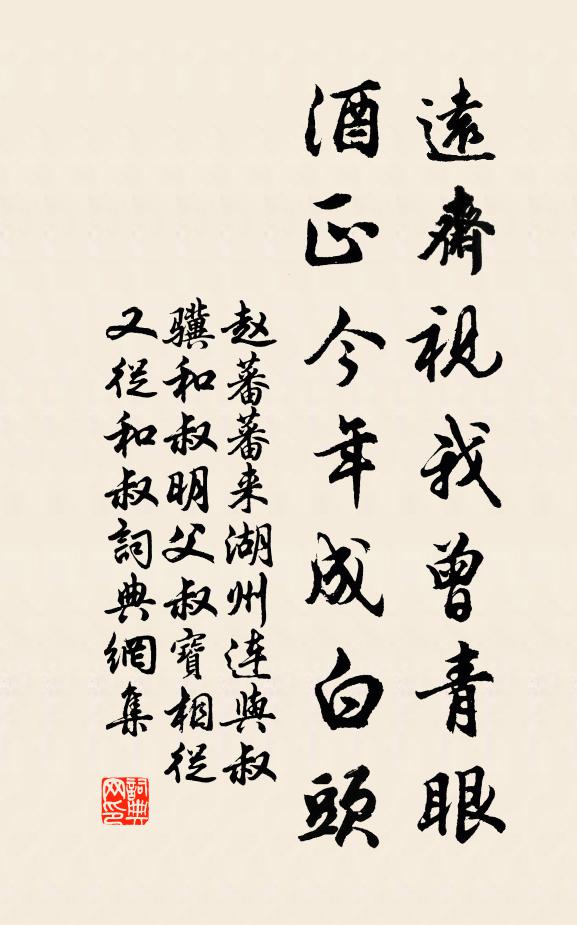 遠齋視我曾青眼
酒正今年成白頭
赵蕃蕃来湖州连與叔
骥和叔明父叔寶相從
又從和叔詞典網集
詞典
网印